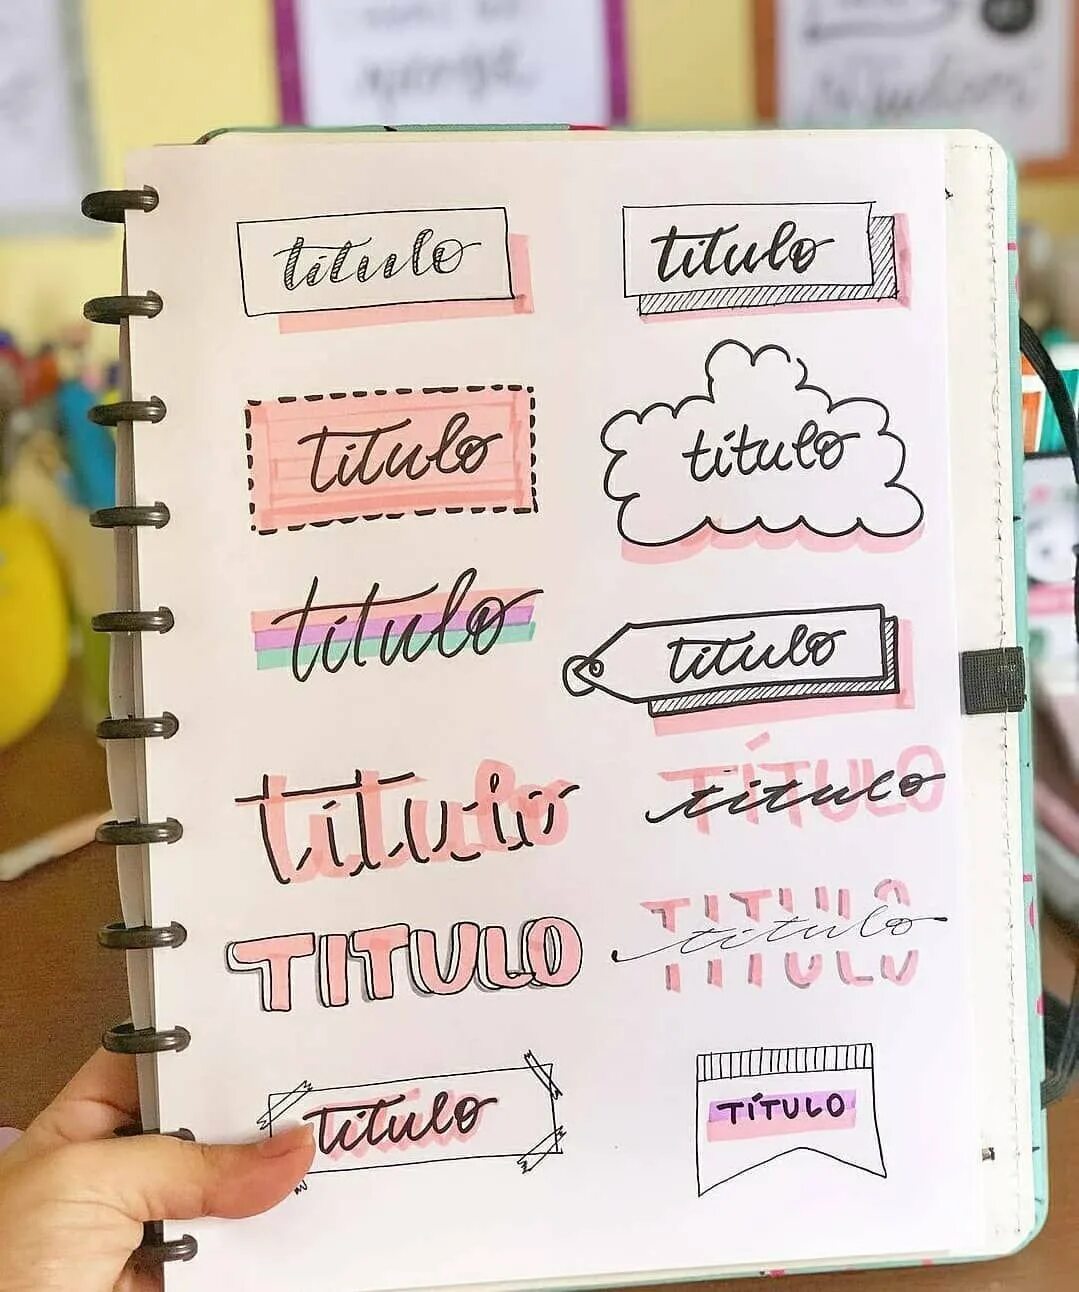 título
título
título
título
título
título
título
TÍTULO
título
TITULO
TITULO
título
título
TÍTULO